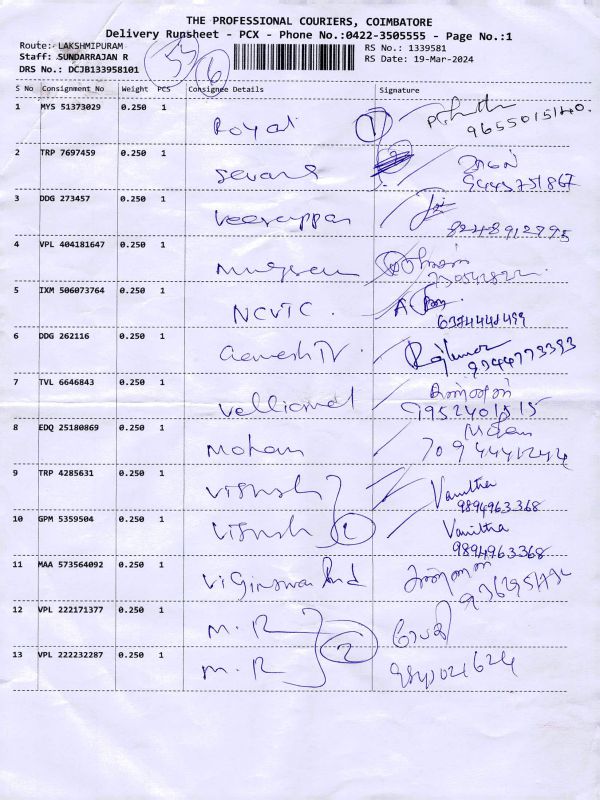 THE PROFESSIONAL COURIERS, COIMBATORE
Delivery Runsheet - PCX - Phone No.:0422-3505555 - Page No.:1
Route: LAKSHMIPURAM
RS No.: 1339581
Staff: SUNDARRAJAN R
RS Date: 19-Mar-2024
DRS No.: DCJB133958101
S No Consignment_No Weight PCS Consignee Details Signature
1 MYS 51373029 0.250 1 Royal 1
9655015140
2 TRP 7697459 0.250 1
9443751867
3 DDG 273457 0.250 1 Veerappan
8248912795
4 VPL 404181647 0.250 1 Murugesan
5 IXM 506073764 0.250 1 NCVTC
6374441499
6 DDG 262116 0.250 1 Ganesh TV Rajkumar
9344773393
7 TVL 6646843 0.250 1
9952401515
8 EDQ 25180869 0.250 1 Mohan Mohan
7094441244
9 TRP 4285631 0.250 1 Vignesh Vanitha
9894963368
10 GPM 5359504 0.250 1 Vignesh Vanitha
9894963368
11 MAA 573564092 0.250 1
12 VPL 222171377 0.250 1 M.R 2
13 VPL 222232287 0.250 1 M.R